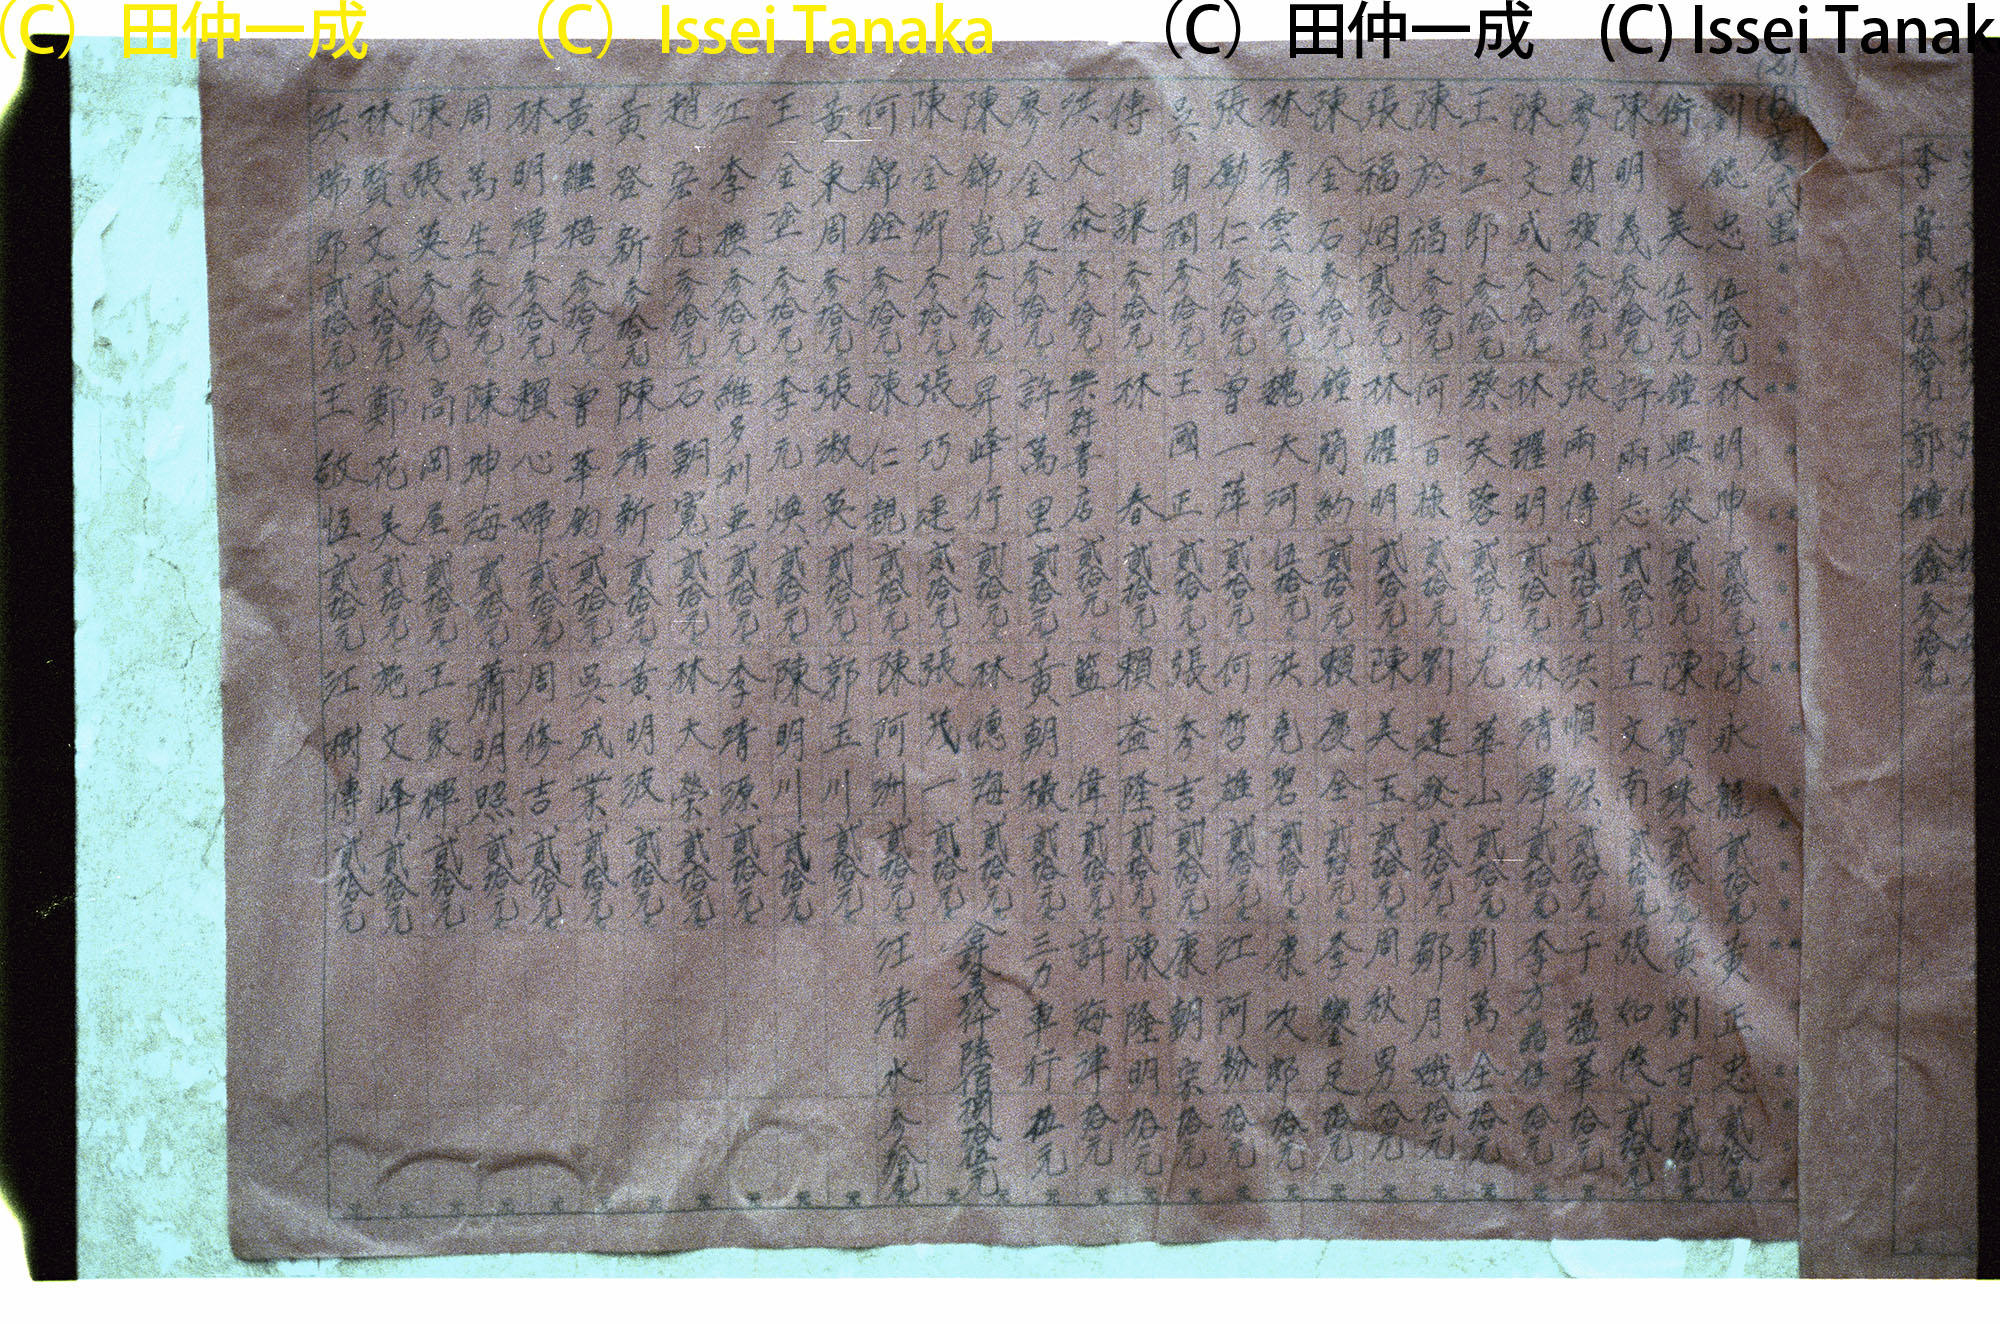 (C) 田仲一成 (C) Issei Tanaka (C) 田仲一成 (C) Issei Tanak
李 光 伍拾元 郭鐘鑫 參拾元
居民里
劉 忠 伍拾元 林明坤 貳拾元 陳永龍 貳拾元 黃正忠 貳拾元
吳 伍拾元 鐘興秋 貳拾元 陳寶珠 貳拾元 黃劉甘 貳拾元
陳明義 參拾元 許兩志 貳拾元 王文南 貳拾元 張如俠 貳拾元
廖財 參拾元 張兩傳 貳拾元 洪順 貳拾元 于蘊華 拾元
陳文成 參拾元 林耀明 貳拾元 林清潭 貳拾元 李方 拾元
王三郎 參拾元 蔡芙蓉 貳拾元 尤華山 貳拾元 劉萬全 拾元
陳於福 參拾元 何百祿 貳拾元 劉蓮發 貳拾元 鄒月娥 拾元
張福烟 貳拾元 林耀明 貳拾元 陳美玉 貳拾元 周秋男 拾元
陳金石 參拾元 鐘簡約 貳拾元 賴慶全 貳拾元 李 足 拾元
林清雲 參拾元 魏大河 伍拾元 洪堯碧 貳拾元 康次郎 拾元
張勵仁 參拾元 曾一萍 貳拾元 何哲雄 貳拾元 江阿枌 拾元
吳身潤 參拾元 王國正 貳拾元 張李吉 貳拾元 康朝宗 拾元
傅諒 參拾元 林春 貳拾元 賴益隆 貳拾元 陳隆明 拾元
洪大森 參拾元 樂群書店 貳拾元 藍偉 貳拾元 許海津 拾元
廖金定 參拾元 許萬里 貳拾元 黃朝 貳拾元 三力車行 伍元
陳錦崑 參拾元 昇峰行 貳拾元 林德海 貳拾元 合計金 仟陸佰 拾伍元
陳金鄉 參拾元 張巧連 貳拾元 張 一 貳拾元
何錦銓 參拾元 陳仁親 貳拾元 陳阿洲 貳拾元 汪清水 參拾元
黃東周 參拾元 張淑英 貳拾元 郭玉川 貳拾元
王金塗 參拾元 李元煥 貳拾元 陳明川 貳拾元
江李 參拾元 維多利亞 貳拾元 李清源 貳拾元
趙宏元 參拾元 石朝寬 貳拾元 林大榮 貳拾元
黃登新 參拾元 陳清新 貳拾元 黃明波 貳拾元
黃繼梧 參拾元 曾華鈞 貳拾元 吳成業 貳拾元
林明潭 參拾元 賴心婦 貳拾元 周修吉 貳拾元
周萬生 參拾元 陳坤海 貳拾元 蕭明照 貳拾元
陳張英 參拾元 高岡屋 貳拾元 王家樺 貳拾元
林賢文 貳拾元 鄭花美 貳拾元 施文峰 貳拾元
洪瑞郎 貳拾元 王敬恆 貳拾元 江樹傳 貳拾元